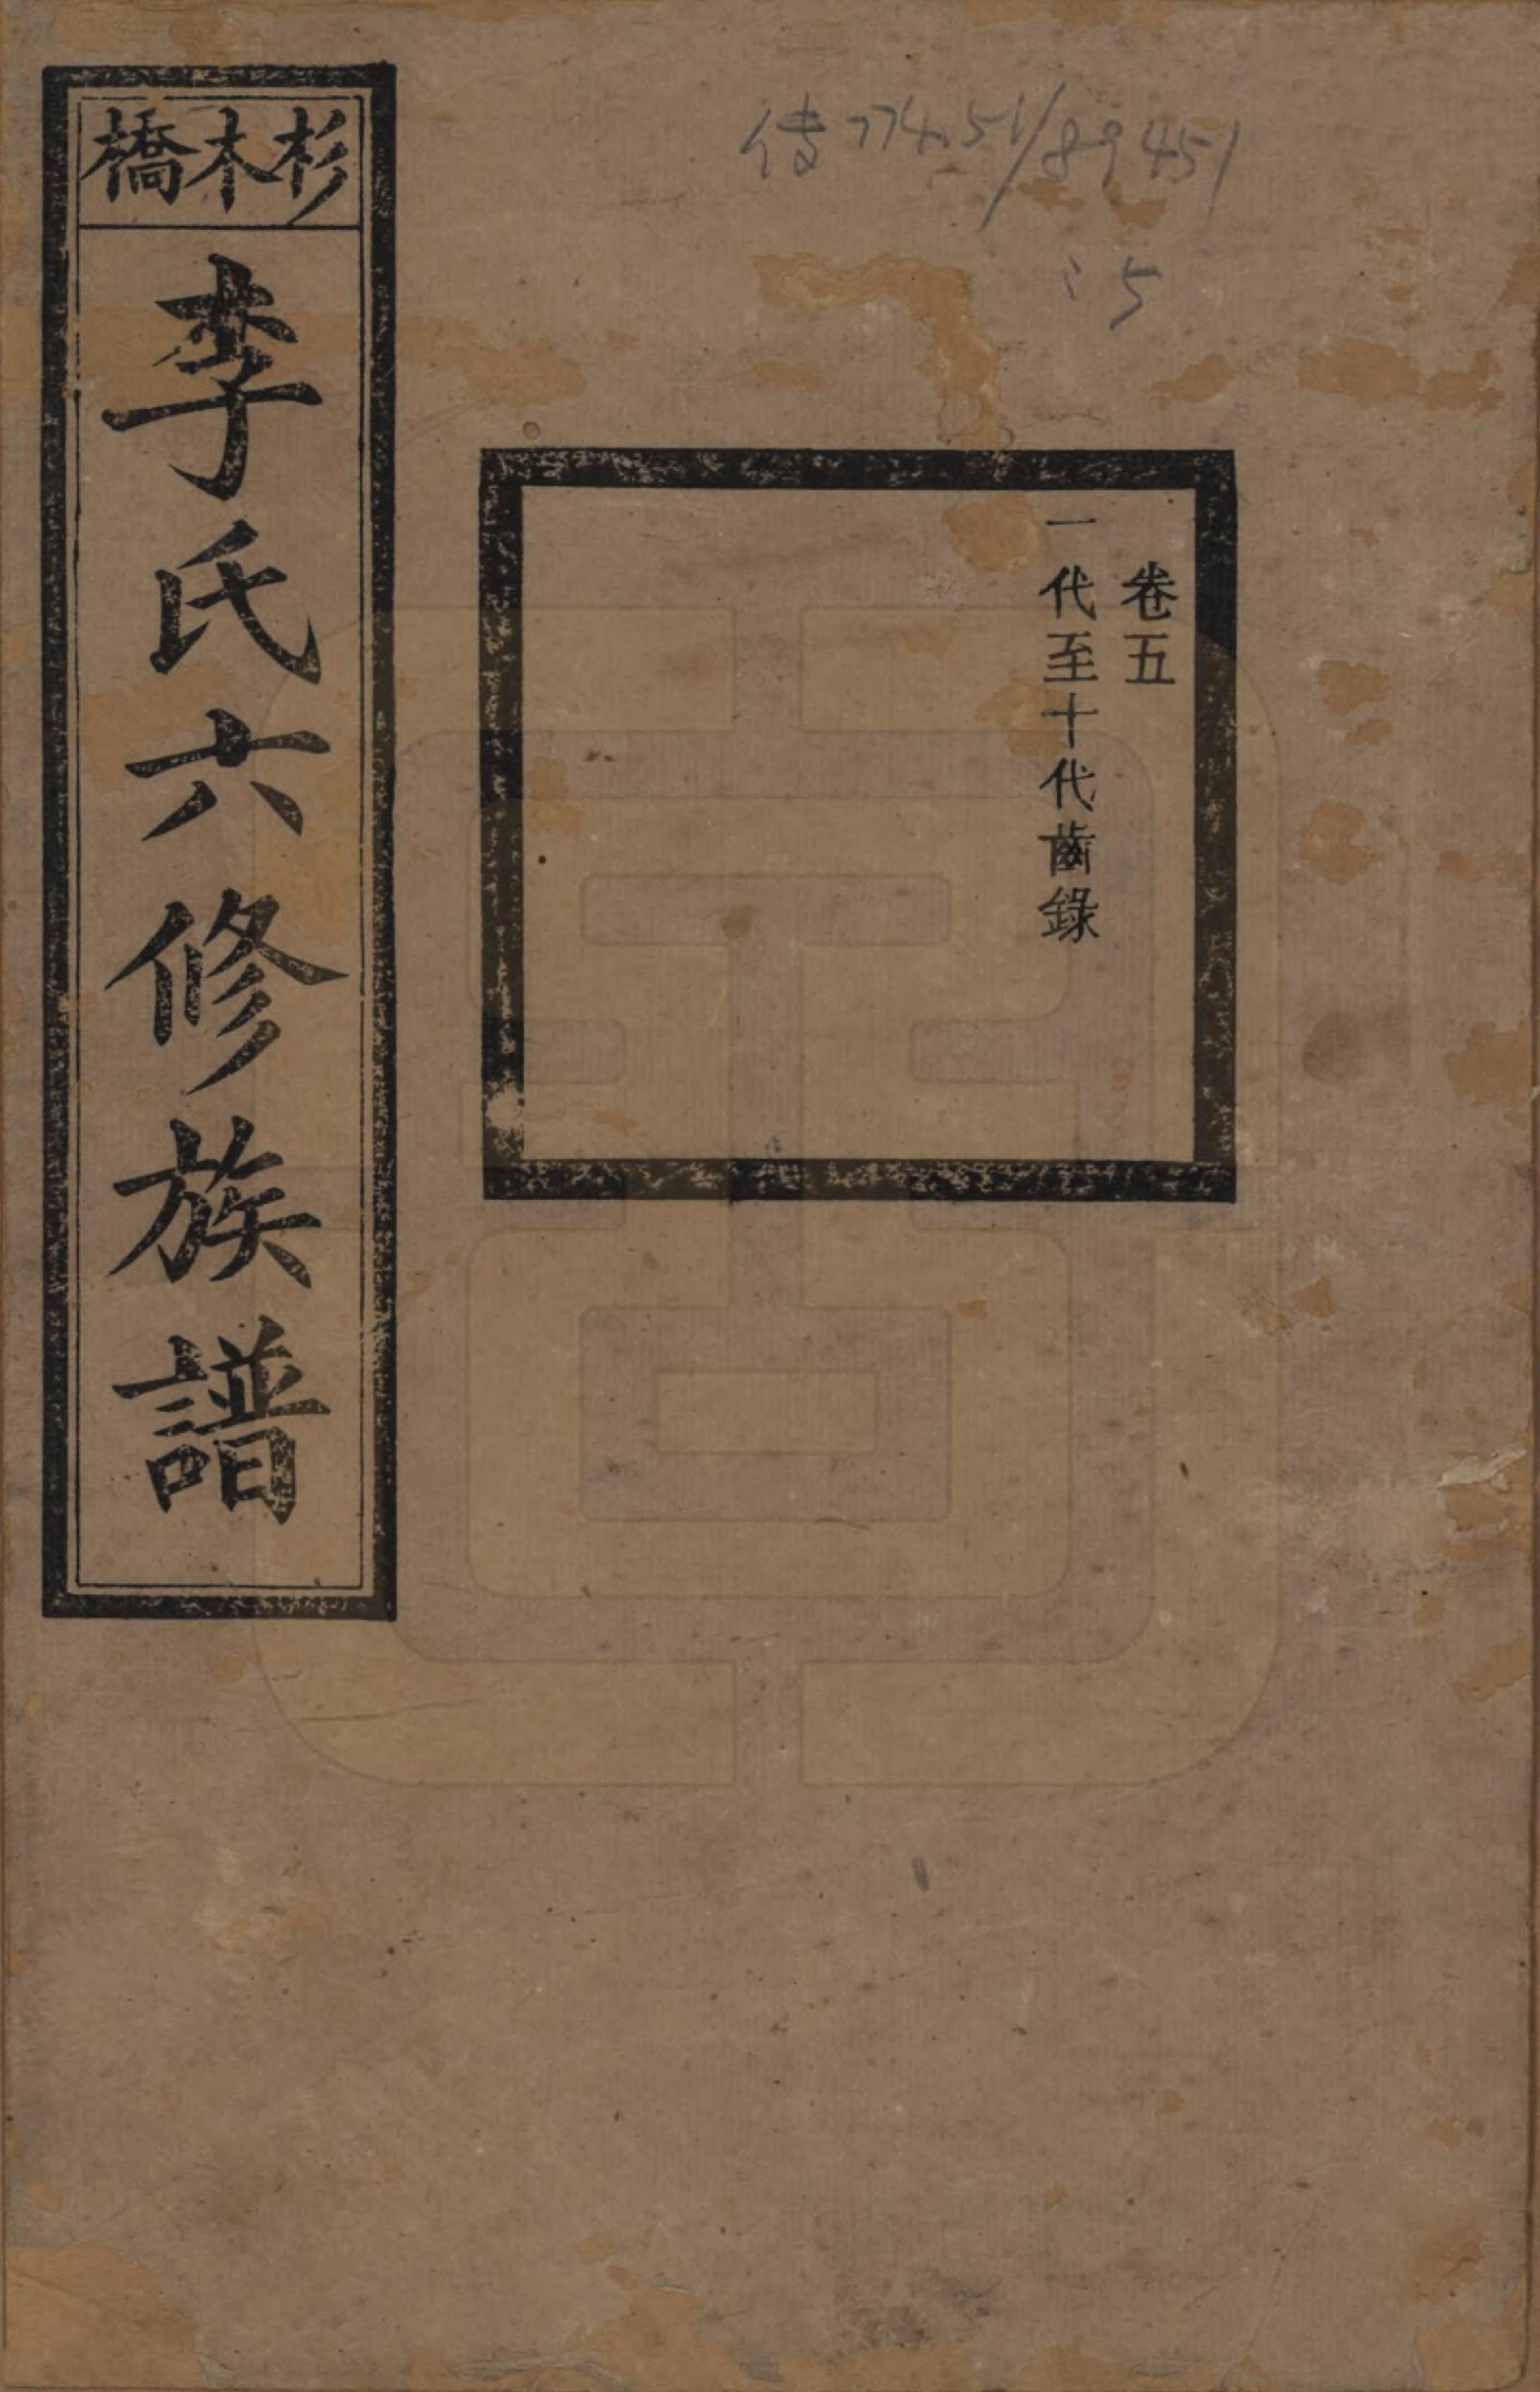 傳 774.51/89451
:5
卷五
一代至十代齒錄
杉木橋
李氏六修族譜